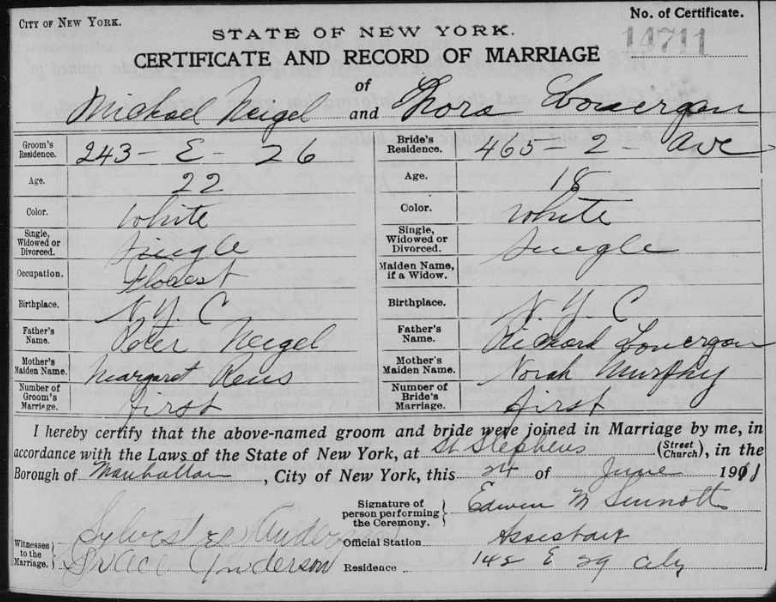 CITY OF NEW YORK.
No. of Certificate.
14711
STATE OF NEW YORK.
CERTIFICATE AND RECORD OF MARRIAGE
of
Michael Neigel and Nora
Groom's Residence. 243 - E - 26 Bride's Residence. 465 - 2 - Ave
Age. 22 Age. 18
Color. White Color. White
Single, Widowed or Divorced. Single Single, Widowed or Divorced. Single
Occupation. Florest Maiden Name, if a Widow.
Birthplace. N. Y. C Birthplace. N. Y. C
Father's Name. Peter Neigel Father's Name. Richard Lonergan
Mother's Maiden Name. Margaret Reus Mother's Maiden Name. Norah Murphy
Number of Groom's Marriage. first Number of Bride's Marriage. first
I hereby certify that the above-named groom and bride were joined in Marriage by me, in
accordance with the Laws of the State of New York, at St Stephens (Street Church), in the
Borough of Manhattan, City of New York, this 24 of June 1911
Signature of person performing the Ceremony. Edwin M Sinnott
Witnesses to the Marriage.
Official Station Assistant
Grace Anderson
Residence 142 E 29 City